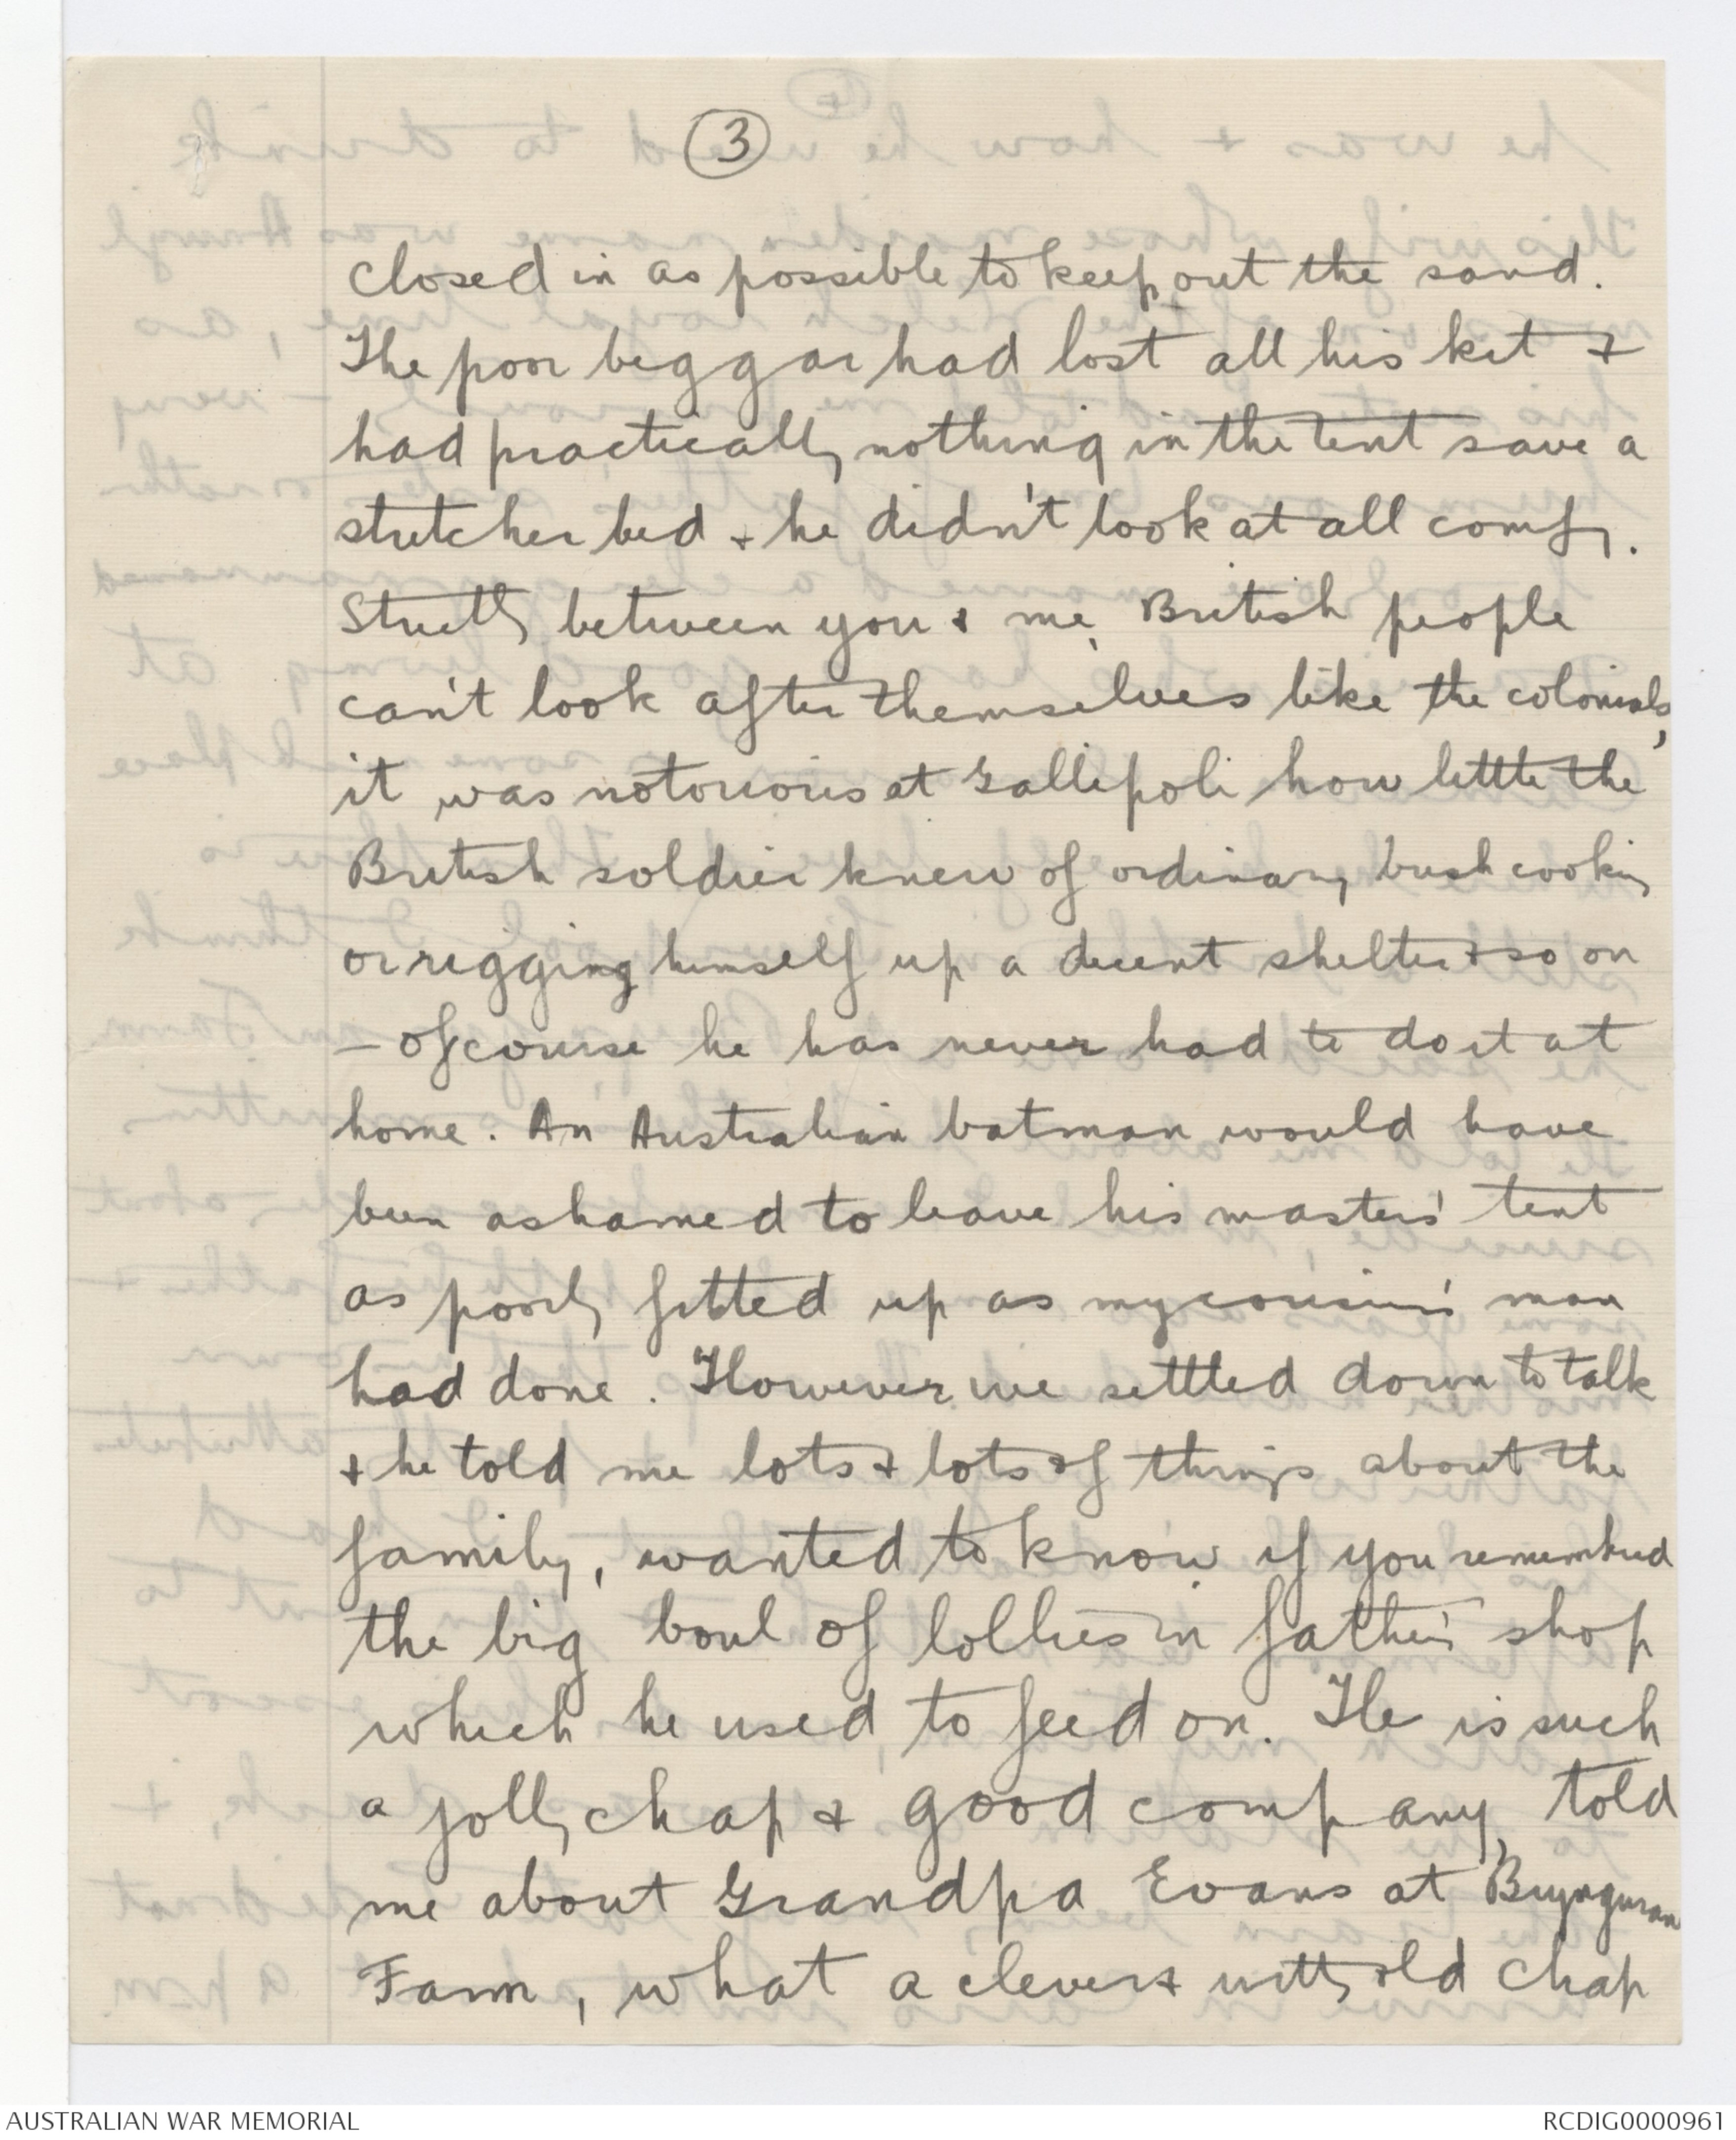 3
closed in as possible to keep out the sand.
The poor beggar had lost all his kit &
had practically nothing in the tent save a
stretcher bed & he didn't look at all comfy.
Strictly between you & me, British people
can't look after themselves like the colonials,
it was notorious at Gallipoli how little the
British soldier knew of ordinary bush cooking
or rigging himself up a decent shelter & so on
– of course he has never had to do it at
home. An Australian batman would have
been ashamed to leave his masters' tent
as poorly fitted up as my cousin's man
had done. However we settled down to talk
& he told me lots & lots of things about the
family, wanted to know if you remembered
the big bowl of lollies in father's shop
which he used to feed on. He is such
a jolly chap & good company, told
me about Grandpa Evans at
Farm, what a clever & witty old chap
AUSTRALIAN WAR MEMORIAL
RCDIG0000961